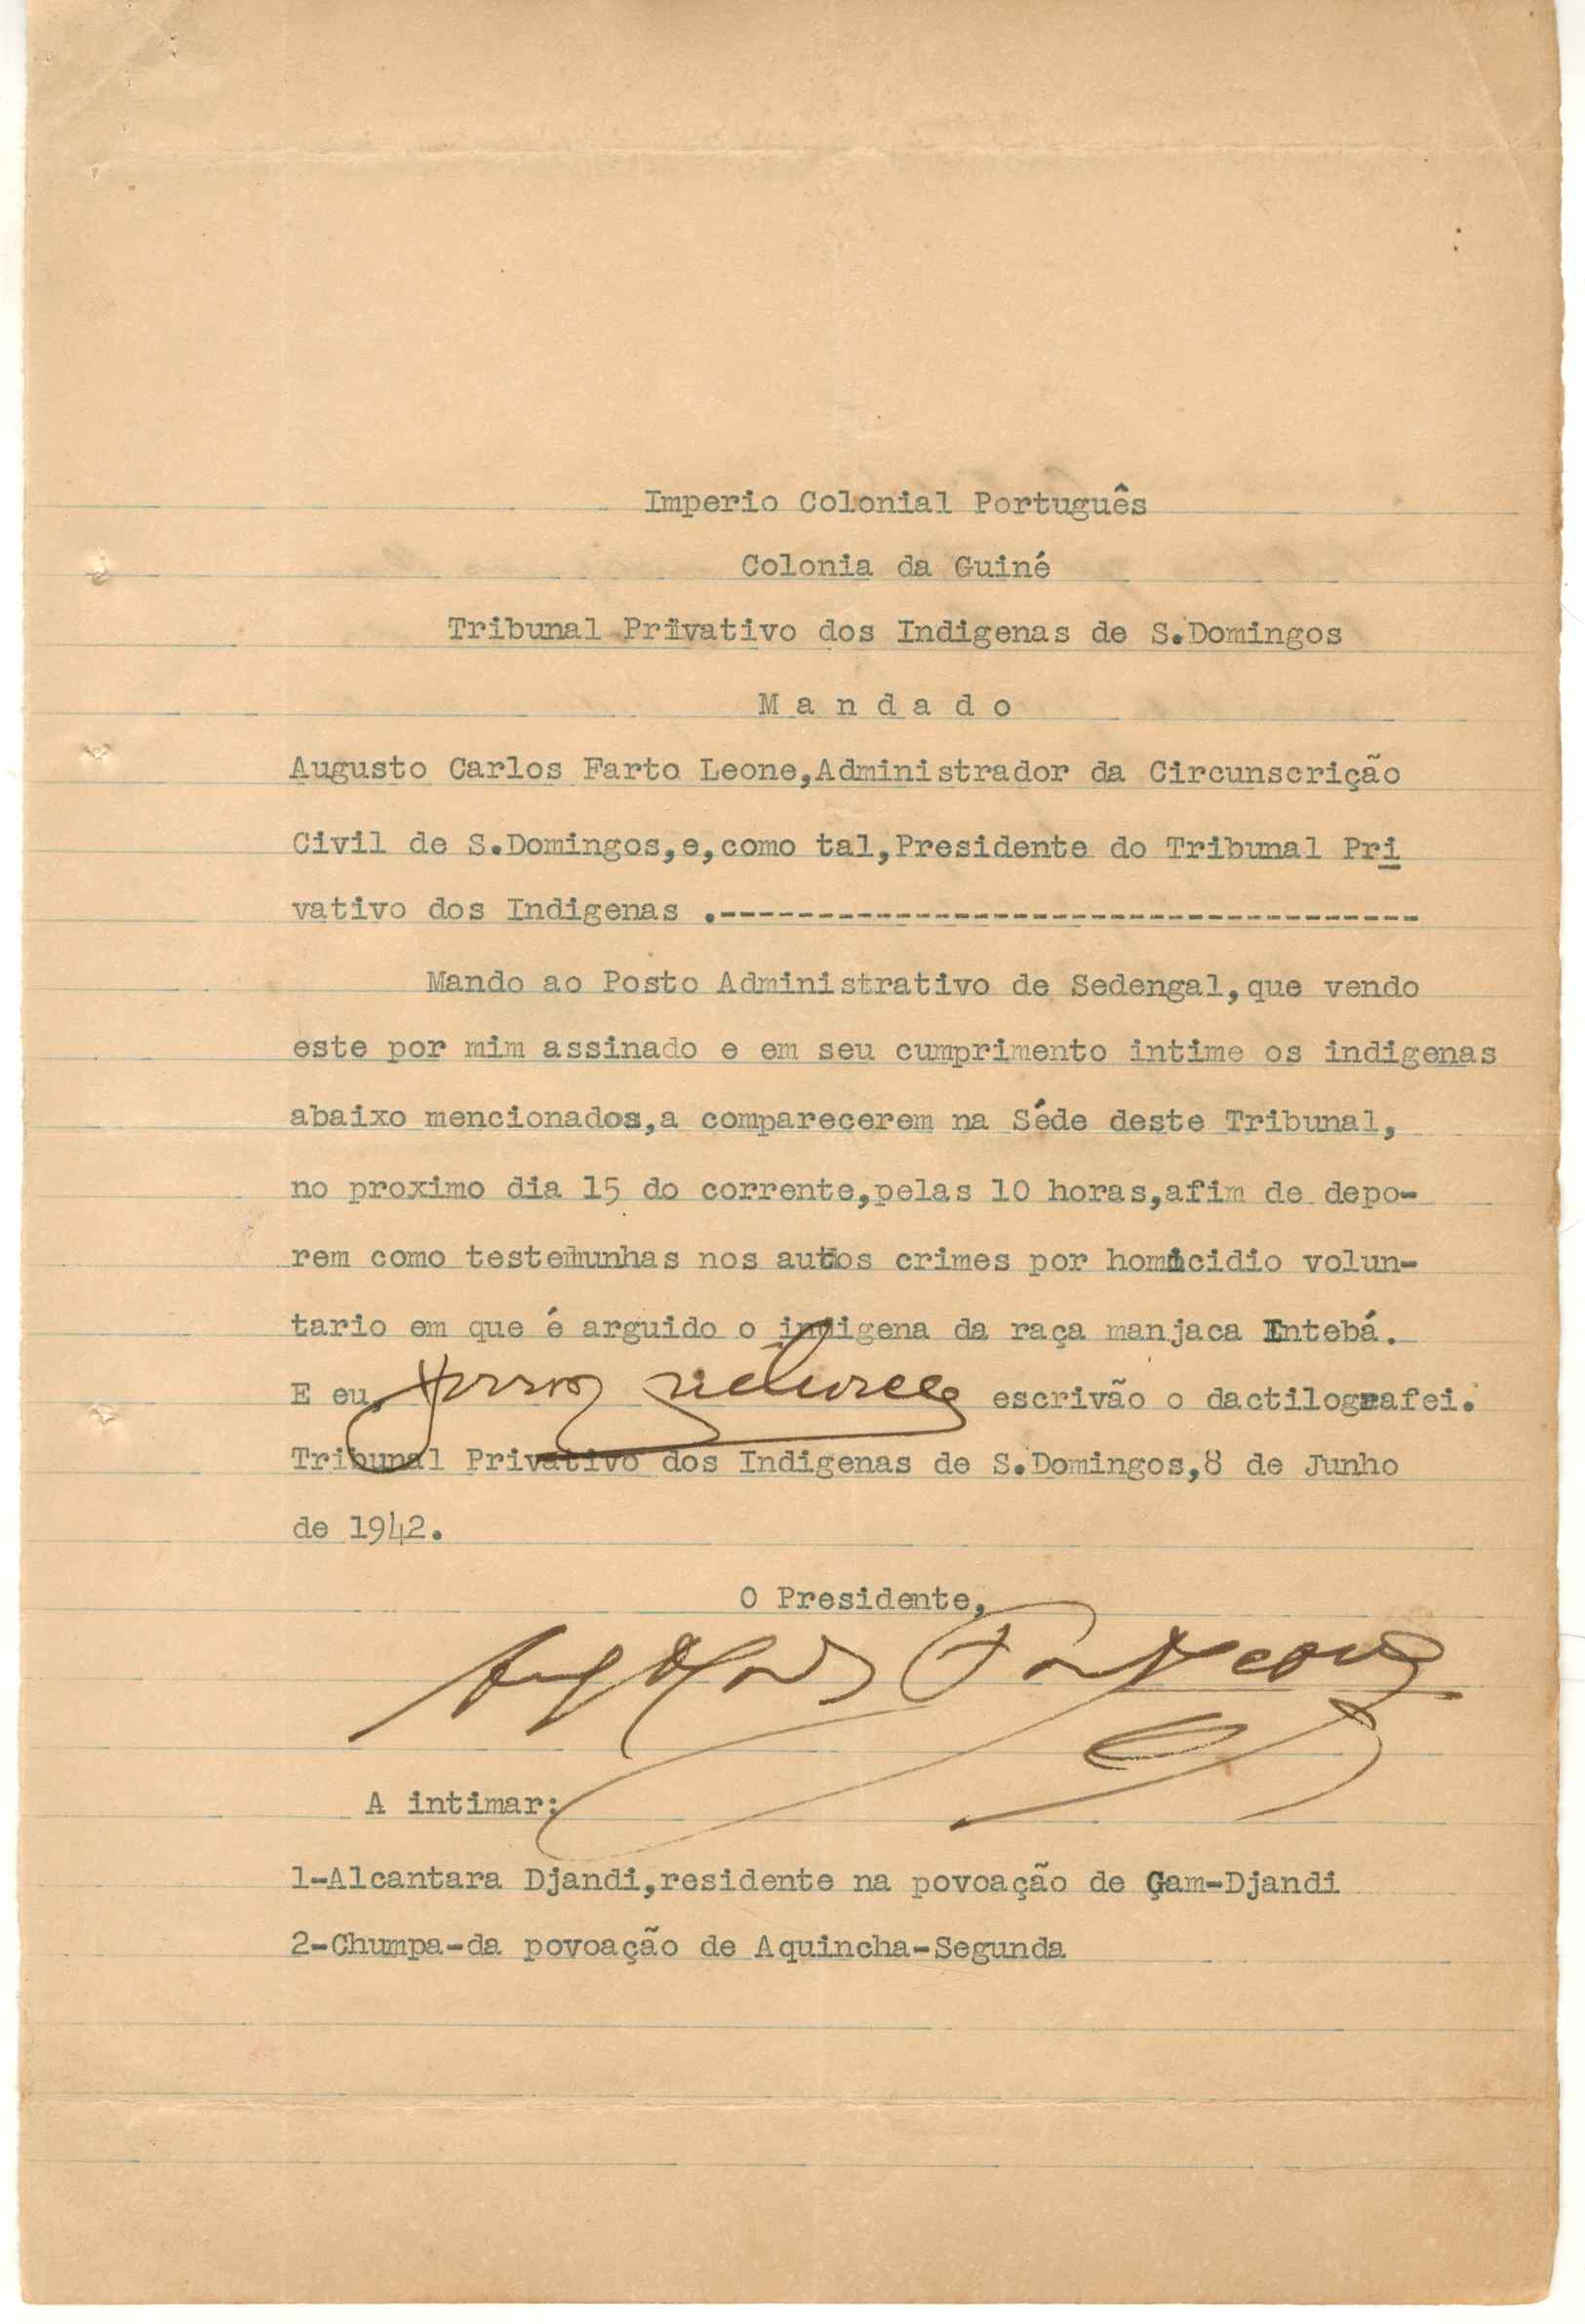 Imperio Colonial Português
Colonia da Guiné
Tribunal Privativo dos Indigenas de S.Domingos
M a n d a d o
Augusto Carlos Farto Leone,Administrador da Circunscrição
Civil de S.Domingos,e,como tal,Presidente do Tribunal Pri
vativo dos Indigenas .------------------------------------
Mando ao Posto Administrativo de Sedengal,que vendo
este por mim assinado e em seu cumprimento intime os indigenas
abaixo mencionados,a comparecerem na Séde deste Tribunal,
no proximo dia 15 do corrente,pelas 10 horas,afim de depo-
rem como testemunhas nos autos crimes por homicidio volun-
tario em que é arguido o indigena da raça manjaca Intebá.
E eu, escrivão o dactilografei.
Tribunal Privativo dos Indigenas de S.Domingos,8 de Junho
de 1942.
O Presidente,
A intimar:
1-Alcantara Djandi,residente na povoação de Çam-Djandi
2-Chumpa-da povoação de Aquincha-Segunda